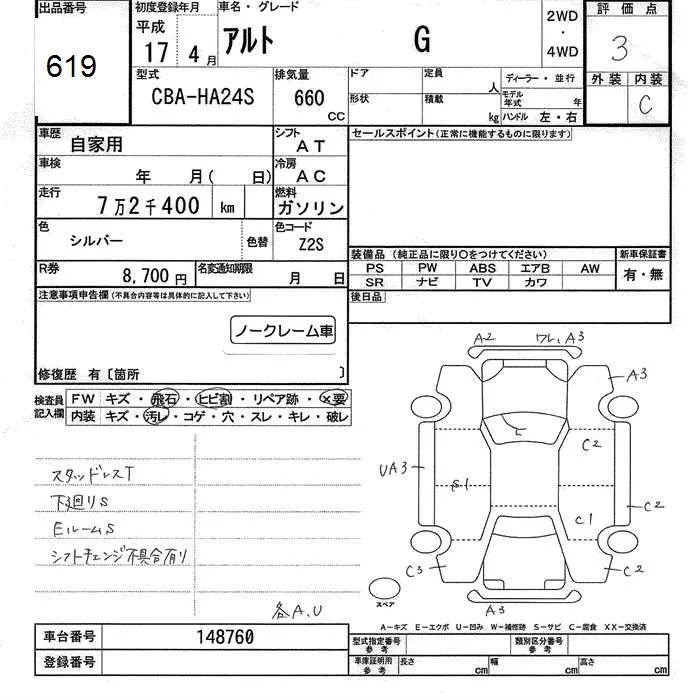 出品番号
619
初度登録年月
平成
17 4 月
車名・グレード
アルト G
2WD
・
4WD
評価点
3
外装 内装
C
型式
CBA-HA24S
排気量
660
CC
ドア 定員 人
形状 積載 kg
ディーラー・並行
モデル年式 年
ハンドル 左・右
車歴
自家用
シフト
AT
車検
年 月( 日)
冷房
AC
走行
7万2千400 km
燃料
ガソリン
色
シルバー
色替
色コード
Z2S
R券
8,700円
名変通知期限
月 日
セールスポイント(正常に機能するものに限ります)
装備品(純正品に限り○をつけてください)
新車保証書
PS PW ABS エアB AW
SR ナビ TV カワ
有・無
後日品
注意事項申告欄(不具合内容等は具体的に記入して下さい)
ノークレーム車
修復歴 有〔箇所 〕
検査員
記入欄
FW キズ・飛石・ヒビ割・リペア跡・×要
内装 キズ・汚レ・コゲ・穴・スレ・キレ・破レ
スタッドレスT
下廻りS
EルームS
シフトチェンジ不具合有り
各A.U
A2 ワレ,A3
A3
C2
UA3
S1
C2
C1
C3
C2
A3
スペア
A-キズ E-エクボ U-凹み W-補修跡 S-サビ C-腐食 XX-交換済
車台番号 148760
登録番号
型式指定番号
参考
類別区分番号
参考
車庫証明用
参考
長さ cm 幅 cm 高さ cm